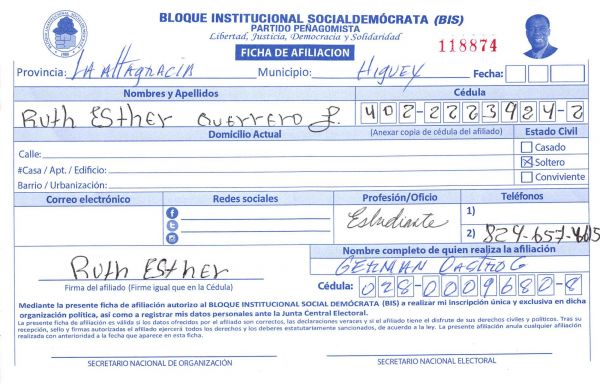 BLOQUE INSTITUCIONAL SOCIALDEMÓCRATA (BIS)
PARTIDO PEÑAGOMISTA
Libertad, Justicia, Democracia y Solidaridad
FICHA DE AFILIACION
118874
Provincia: LA AltAgRACIA Municipio: Higuey Fecha:
Nombres y Apellidos Cédula
Ruth Esther Guerrero 402-2223924-2
Domicilio Actual (Anexar copia de cédula del afiliado) Estado Civil
Calle: Casado
#Casa / Apt. / Edificio: Soltero
Barrio / Urbanización: Conviviente
Correo electrónico Redes sociales Profesión/Oficio Teléfonos
Estudiante 1)
2) 829-657-
Nombre completo de quien realiza la afiliación
Ruth Esther GERMAN CASTRO G
Firma del afiliado (Firme igual que en la Cédula) Cédula: 028-0009680-8
Mediante la presente ficha de afiliación autorizo al BLOQUE INSTITUCIONAL SOCIAL DEMÓCRATA (BIS) a realizar mi inscripción única y exclusiva en dicha
organización política, así como a registrar mis datos personales ante la Junta Central Electoral.
La presente ficha de afiliación es válida si los datos ofrecidos por el afiliado son correctos, las declaraciones veraces y si el afiliado tiene el disfrute de sus derechos civiles y políticos. Tras su
recepción, sello y firmas autorizadas el afiliado ejercerá todos los derechos y los deberes estatutariamente sancionados, de acuerdo a la ley. La presente afiliación anula cualquier afiliación
realizada con anterioridad a la fecha que aparece en esta ficha.
SECRETARIO NACIONAL DE ORGANIZACIÓN SECRETARIO NACIONAL ELECTORAL